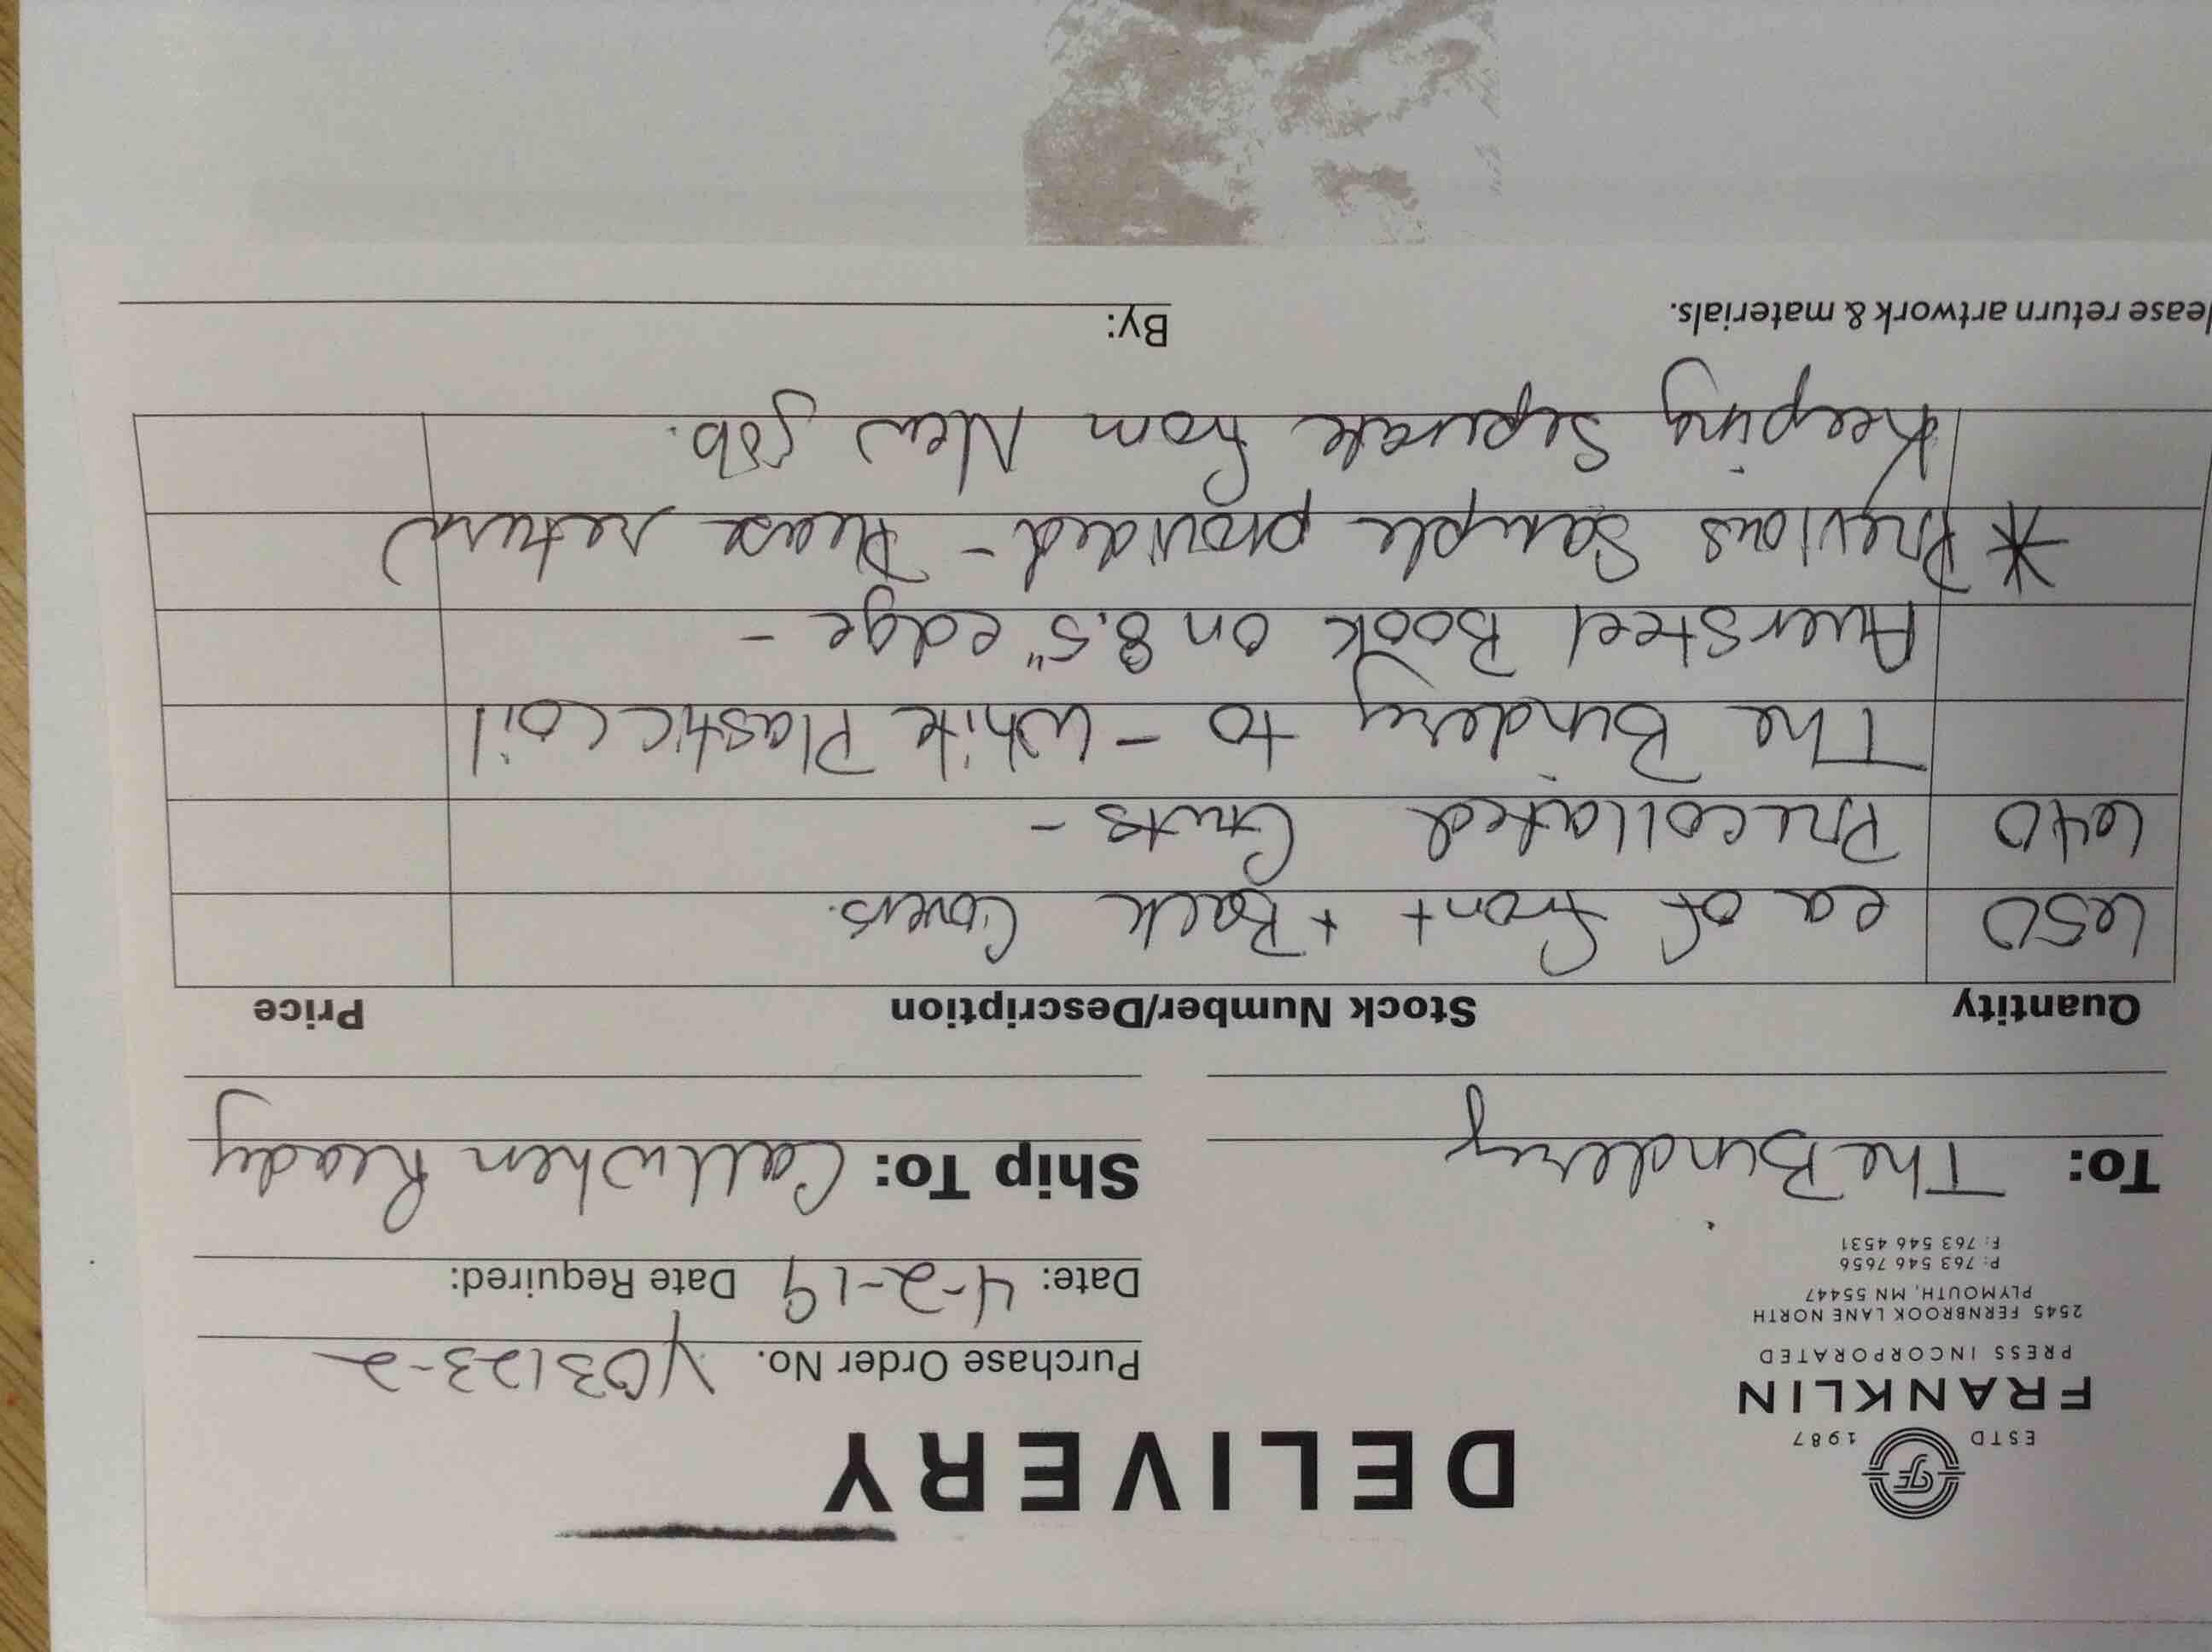 DELIVERY
ESTD 1987
GF
FRANKLIN
PRESS INCORPORATED
2545 FERNBROOK LANE NORTH
PLYMOUTH, MN 55447
P: 763 546 7656
F: 763 546 4531
Purchase Order No. Y03123-2
Date: 4-2-19 Date Required:
To: The Bindery
Ship To: Call when Ready
Quantity Stock Number/Description Price
650 ea of front + Back Covers.
640 Precollated Guts -
The Bindery to - White Plastic Coil
Aversteel Book on 8.5" edge -
* Previous Sample provided - Please return
Keeping Seperate from New Job.
lease return artwork & materials.
By: